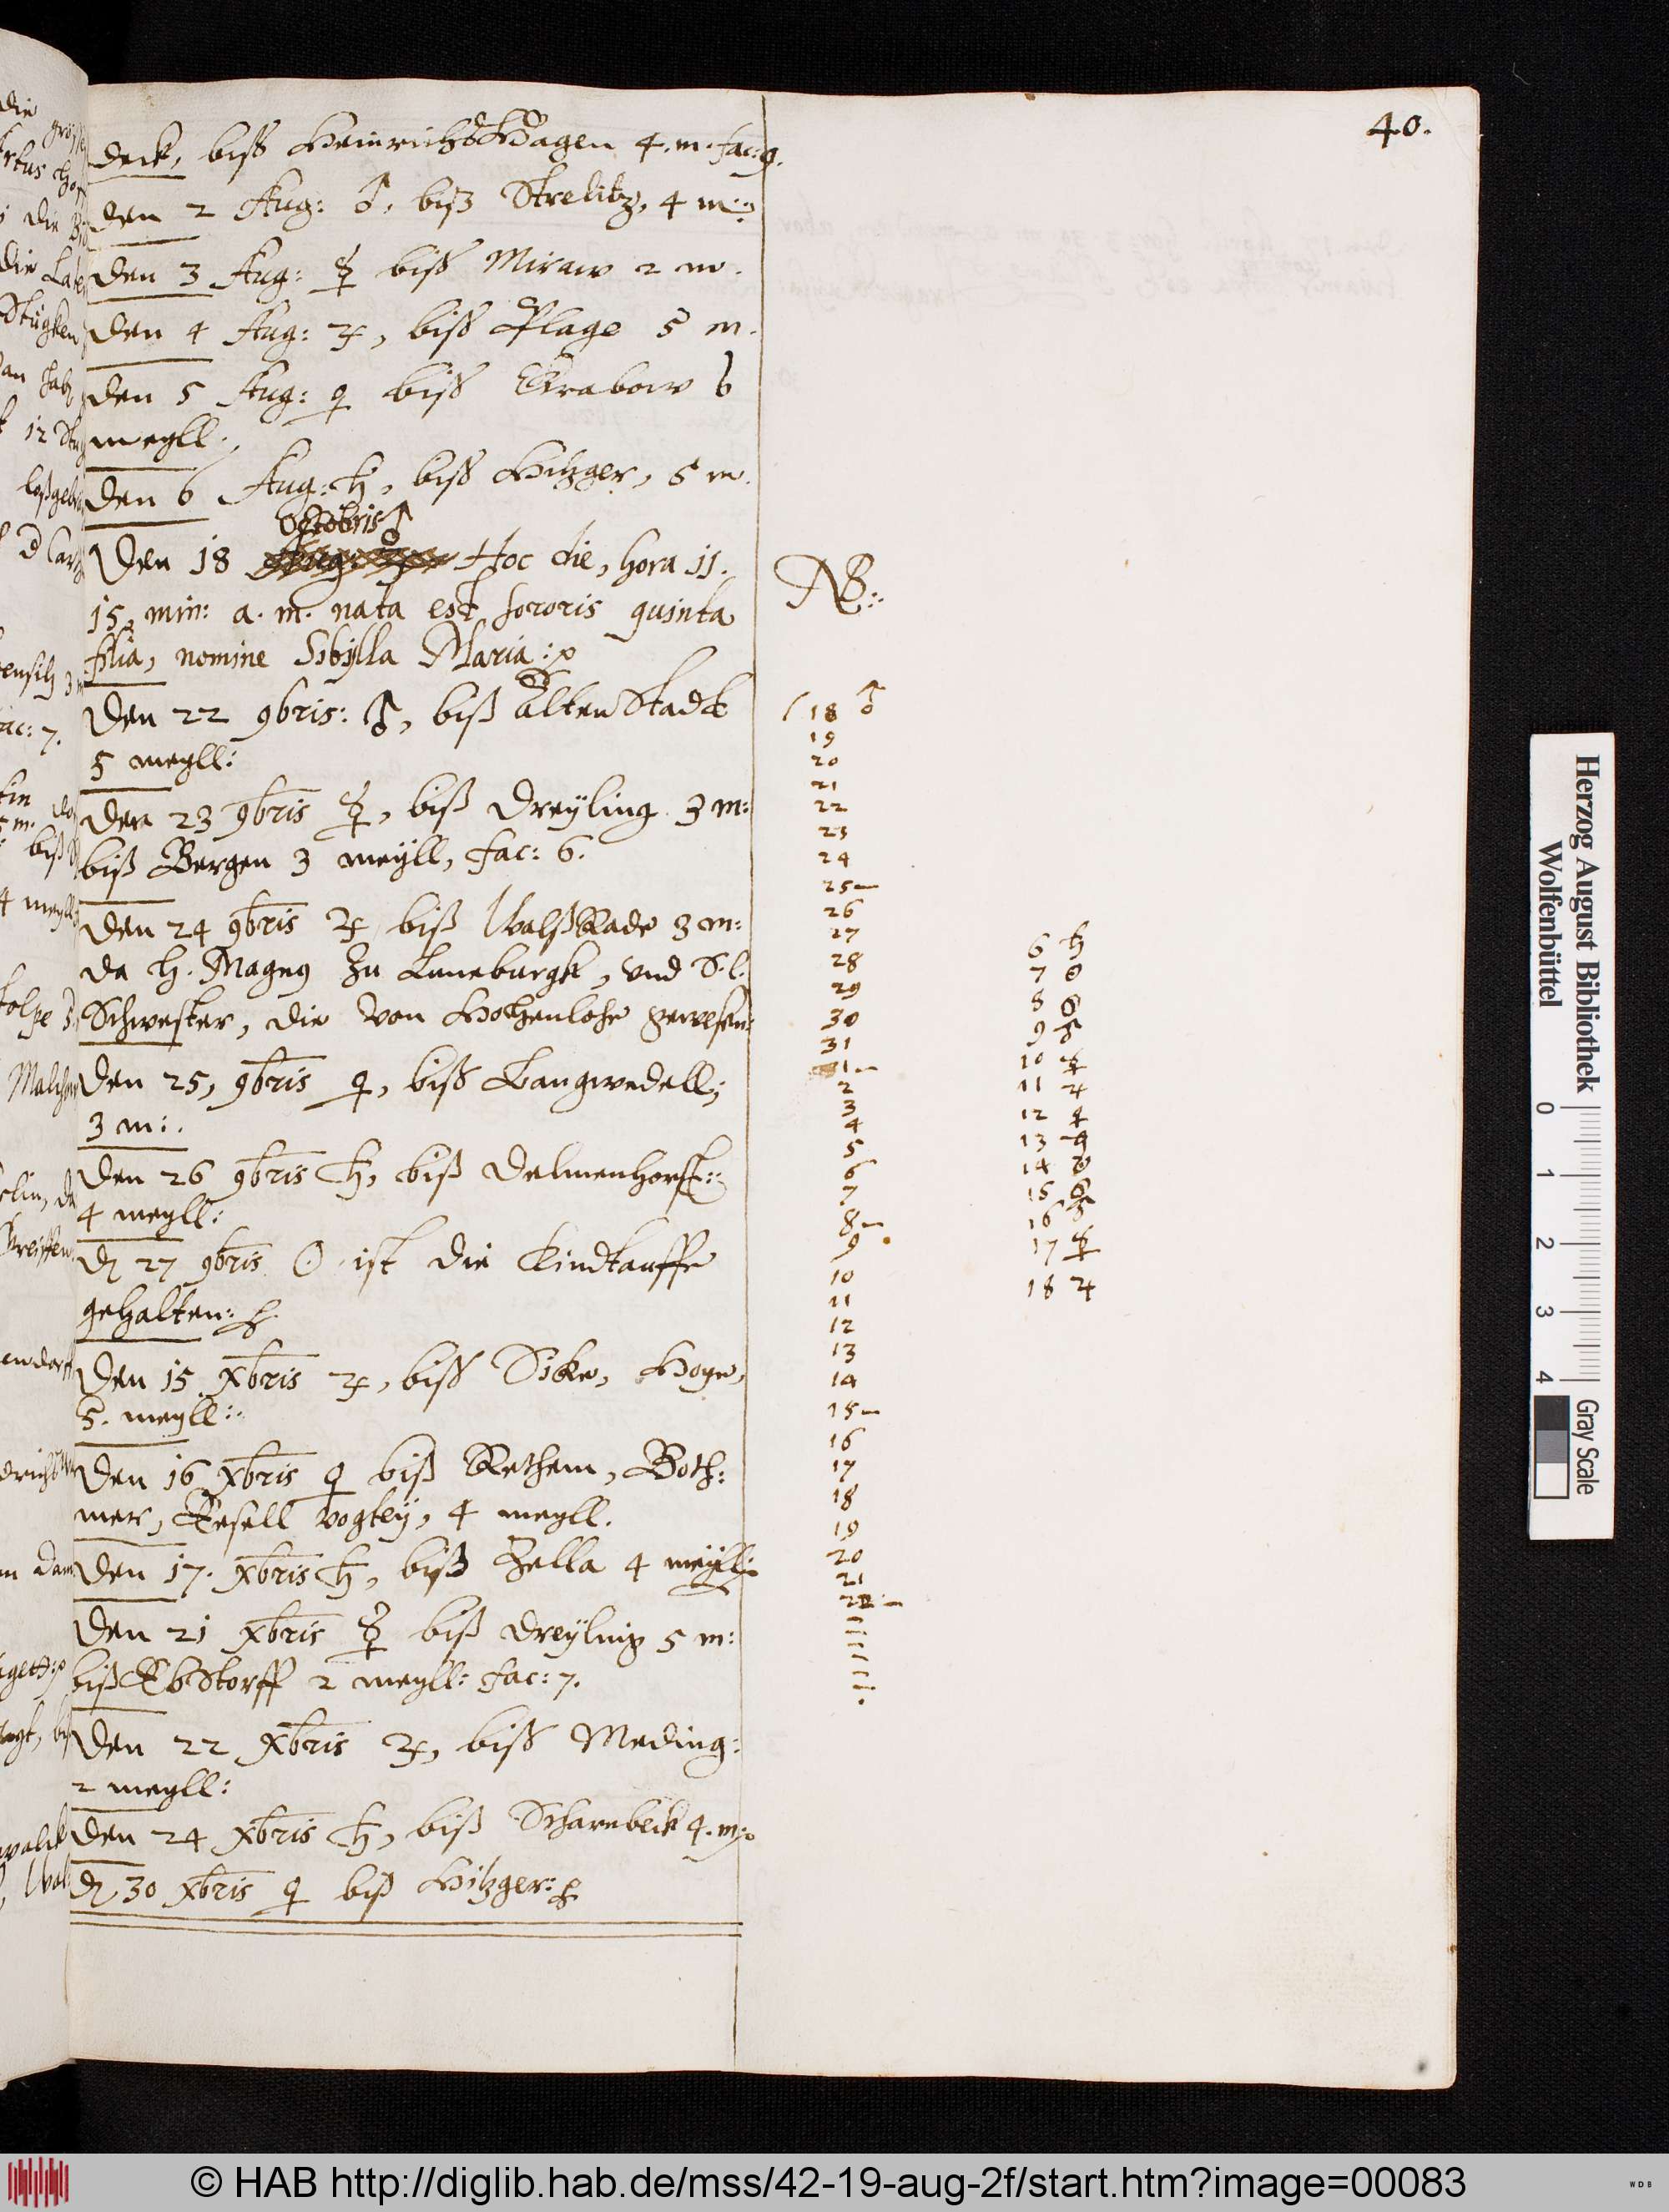 40.
deck, biß HeinrichsHagen 4. m. fac: 9.
den 2 Aug: ♂, biß Strelitz, 4 m::
den 3 Aug: ☿ biß Miraw 2 m.
den 4 Aug: ♃, biß Plage 5 m.
den 5 Aug: ♀ biß Grabow 6
meyll:.
den 6 Aug: ♄, biß Hitzger, 5 m.
Octobris ♂
Den 18 Hoc die, hora 11.
15, min: a. m. nata est sororis quinta
filia, nomine Sibylla Maria:
Den 22 9bris: ♂, biß AltenStadt
5 meyll:
Den 23 9bris ☿, biß Dreyling 3 m:
biß Bergen 3 meyll, fac: 6.
Den 24 9bris ♃ biß WalßRade 3 m:
da H. Magnus zu Luneburgk, und S. l.
Schwester, die von Hohenlohe gewesen:
Den 25, 9bris ♀, biß Langwedell;
3 m:.
Den 26 9bris ♄, biß Delmenhorst::
4 meyll:
dn 27 9bris ☉ ist die Kindtauffe
gehalten:
Den 15 Xbris ♃, biß Sike, Hoye,
5. meyll:.
Den 16 Xbris ♀ biß Rethem, Both:
mer, Esell vogtey, 4 meyll.
Den 17. Xbris ♄, biß Zella 4 meyll:
Den 21 Xbris ☿ biß Dreyling 5 m:
biß EbStorff 2 meyll: fac: 7.
Den 22 Xbris ♃, biß Meding:
2 meyll:
Den 24 Xbris ♄, biß Scharnbeck 4. m:
dn 30 Xbris ♀ biß Hitzger:
NB::
18 ♂
19
20
21
22
23
24
25-
26
27
28
29
30
31
1-
2
3
4
5
6
7
8-
9
10
11
12
13
14
15-
16
17
18
19
20
21
22-
6 ♄
7 ☉
8
9 ♂
10 ☿
11 ♃
12 ♀
13 ♄
14 ☉
15
16 ♂
17 ☿
18 ♃
Herzog August Bibliothek
Wolfenbüttel
0 1 2 3 4
Gray Scale
© HAB http://diglib.hab.de/mss/42-19-aug-2f/start.htm?image=00083
WDB